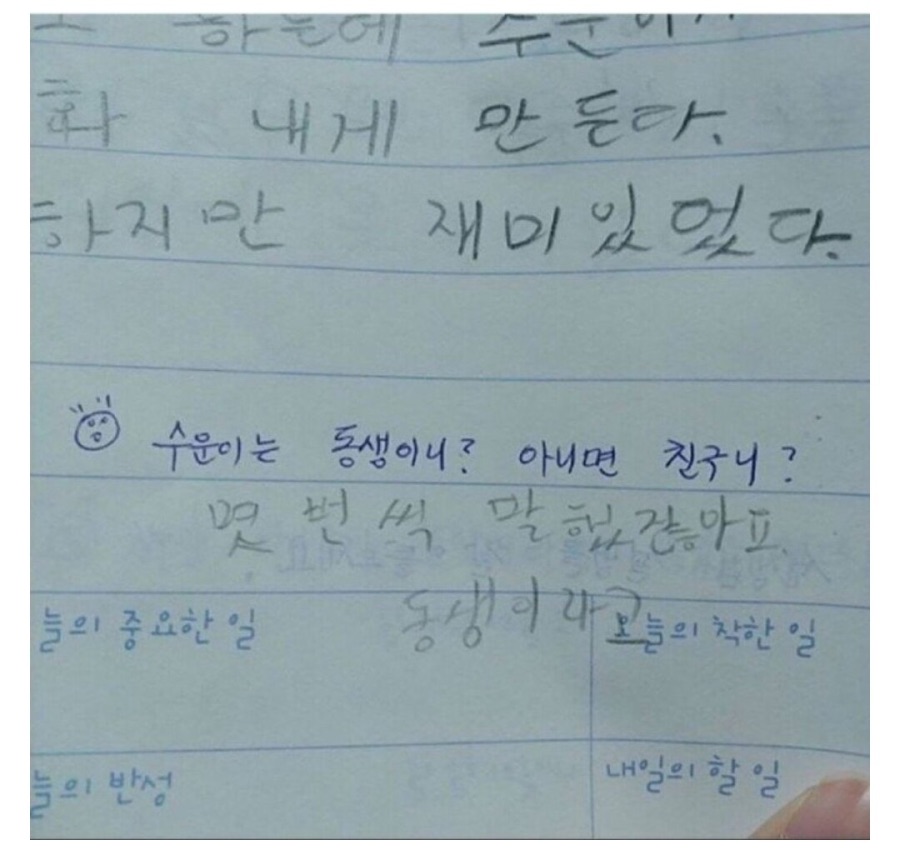 하는에 수운이가
화 내게 만든다.
하지만 재미있었다.
수운이는 동생이니? 아니면 친구니?
몇 번씩 말했잖아요.
동생이라고
늘의 중요한 일 오늘의 착한 일
늘의 반성 내일의 할 일